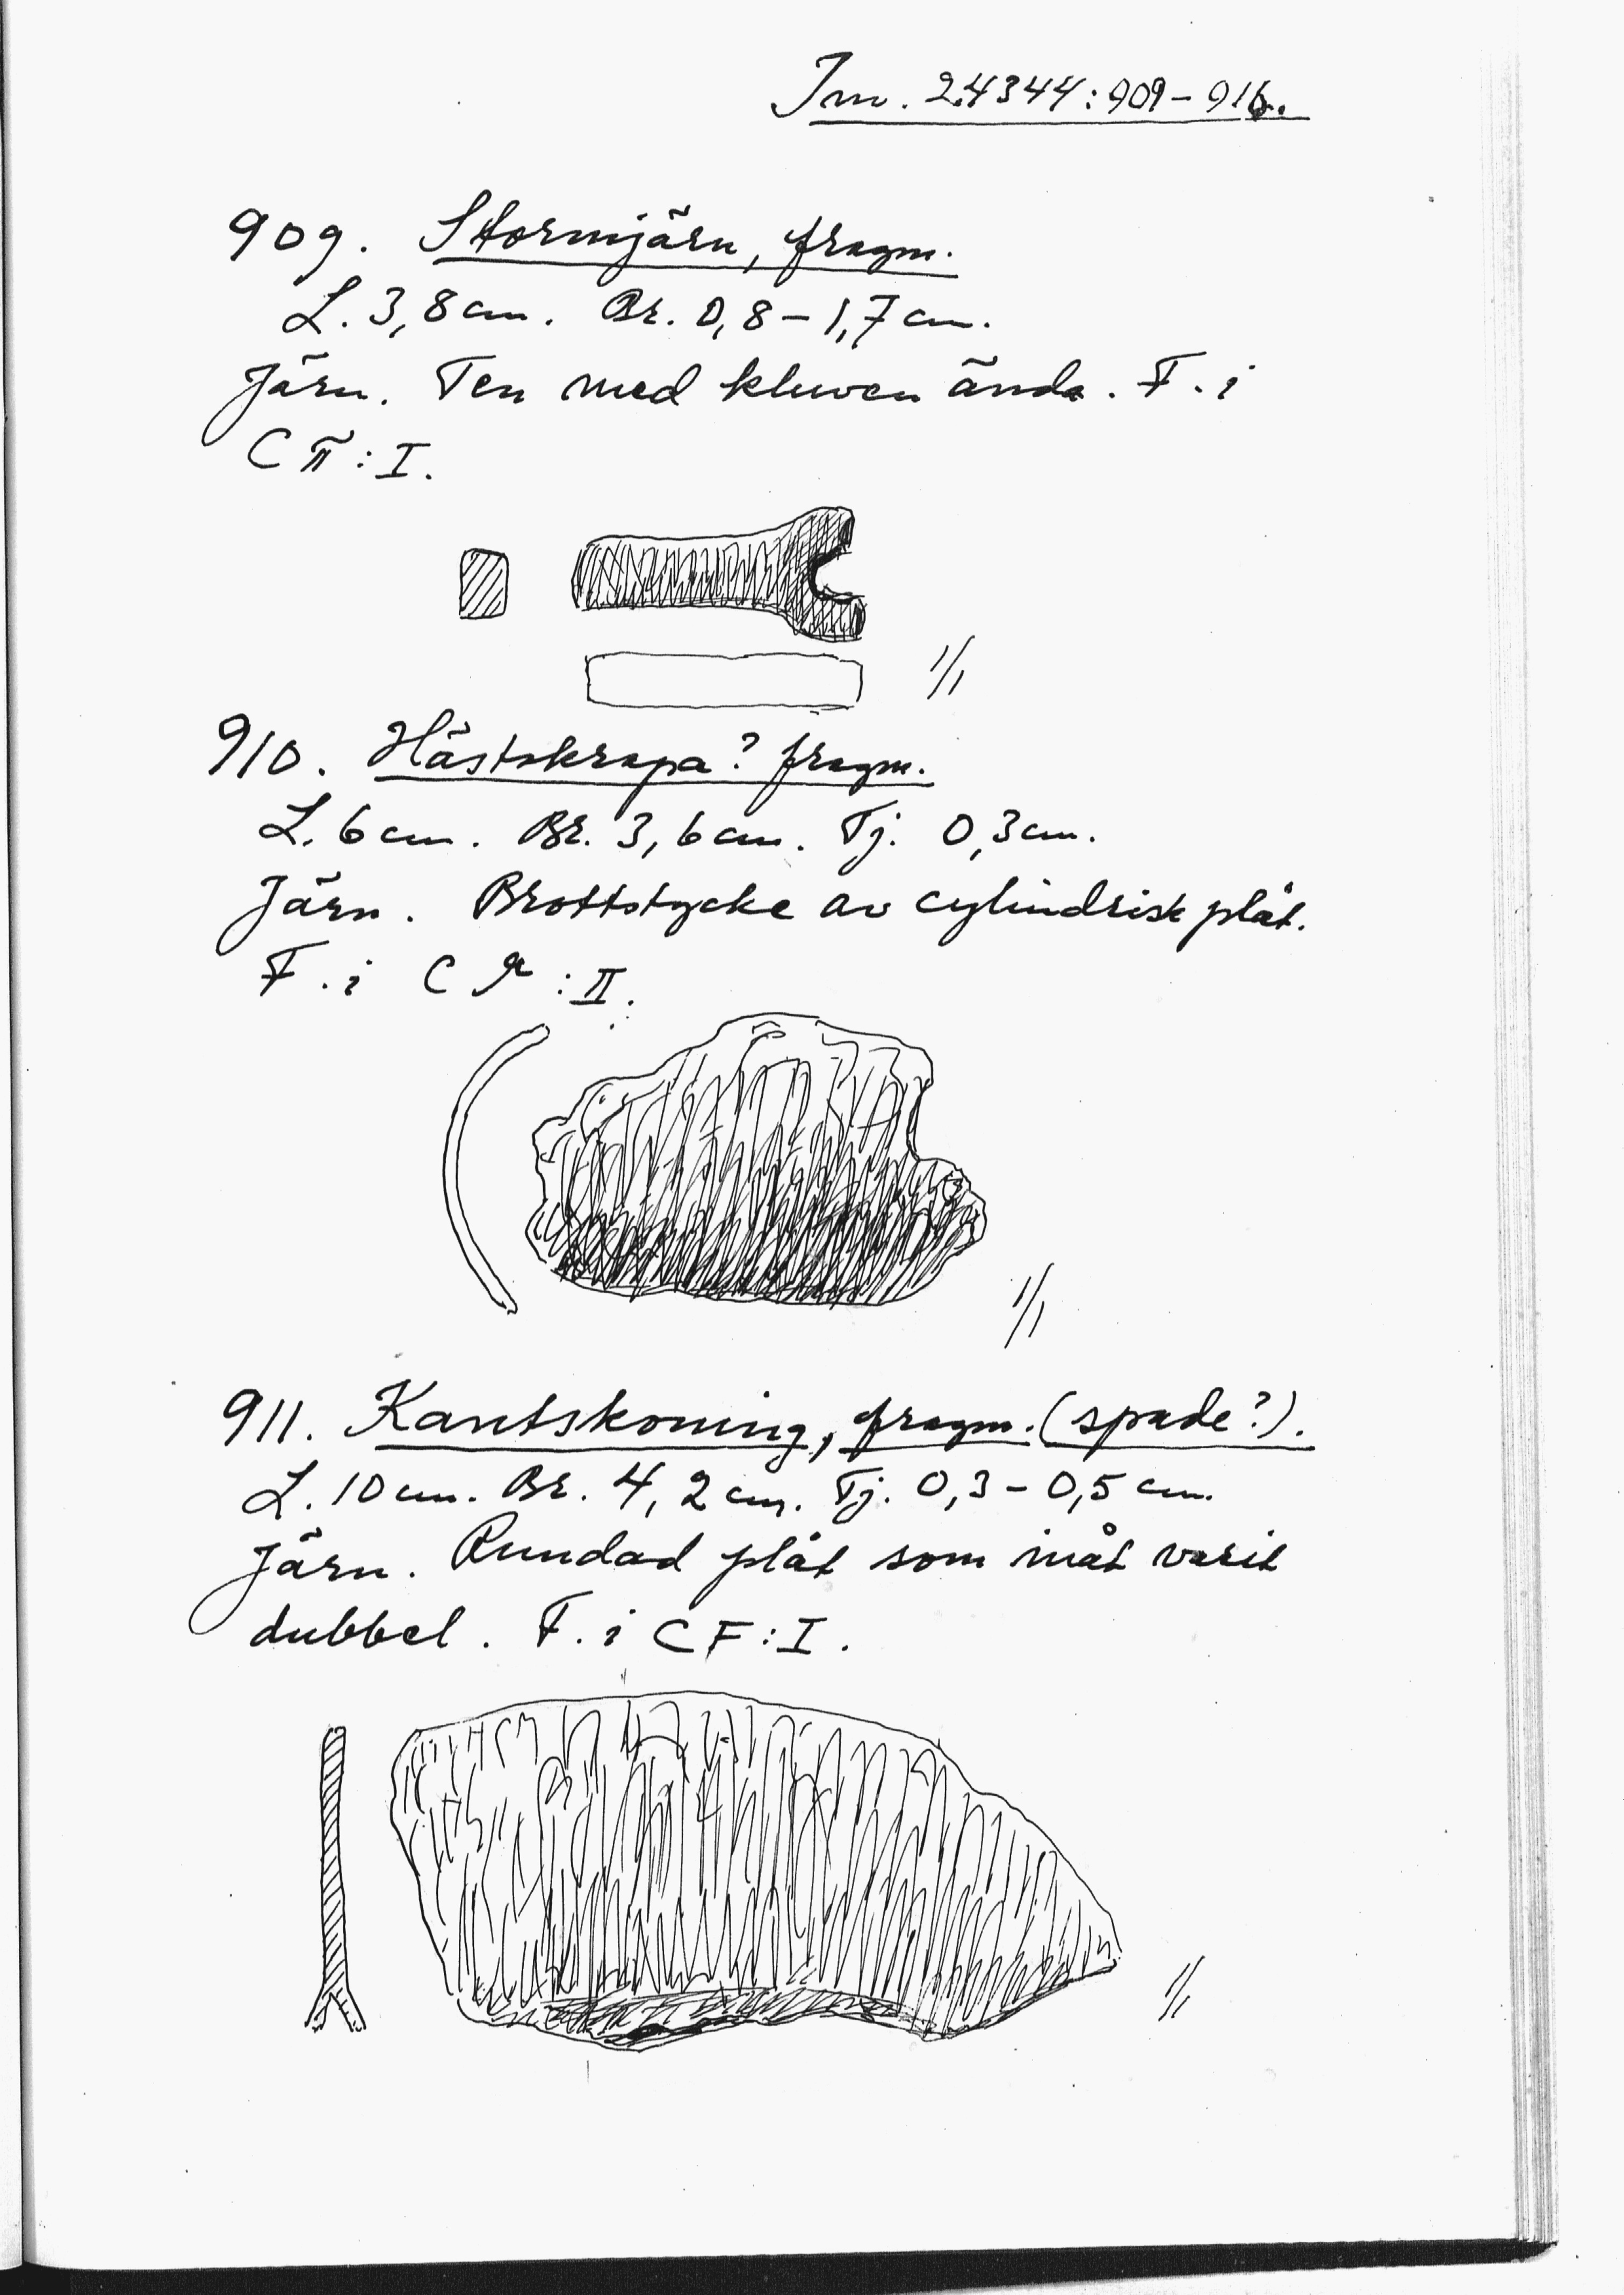 Jm. 24344:909-916.
909. Stormjärn, fragm.
L. 3,8 cm. Br. 0,8-1,7 cm.
Järn. Ten med kluven ända. F. i
C Ä:I.
1/1
910. Hästskrapa? fragm.
L. 6 cm. Br. 3,6 cm. Tj. 0,3 cm.
Järn. Brottstycke av cylindrisk plåt.
F. i C :II.
1/1
911. Kantskoning, fragm. (spade?).
L. 10 cm. Br. 4,2 cm. Tj. 0,3-0,5 cm.
Järn. Rundad plåt som inåt varit
dubbel. F. i CF:I.
1/1